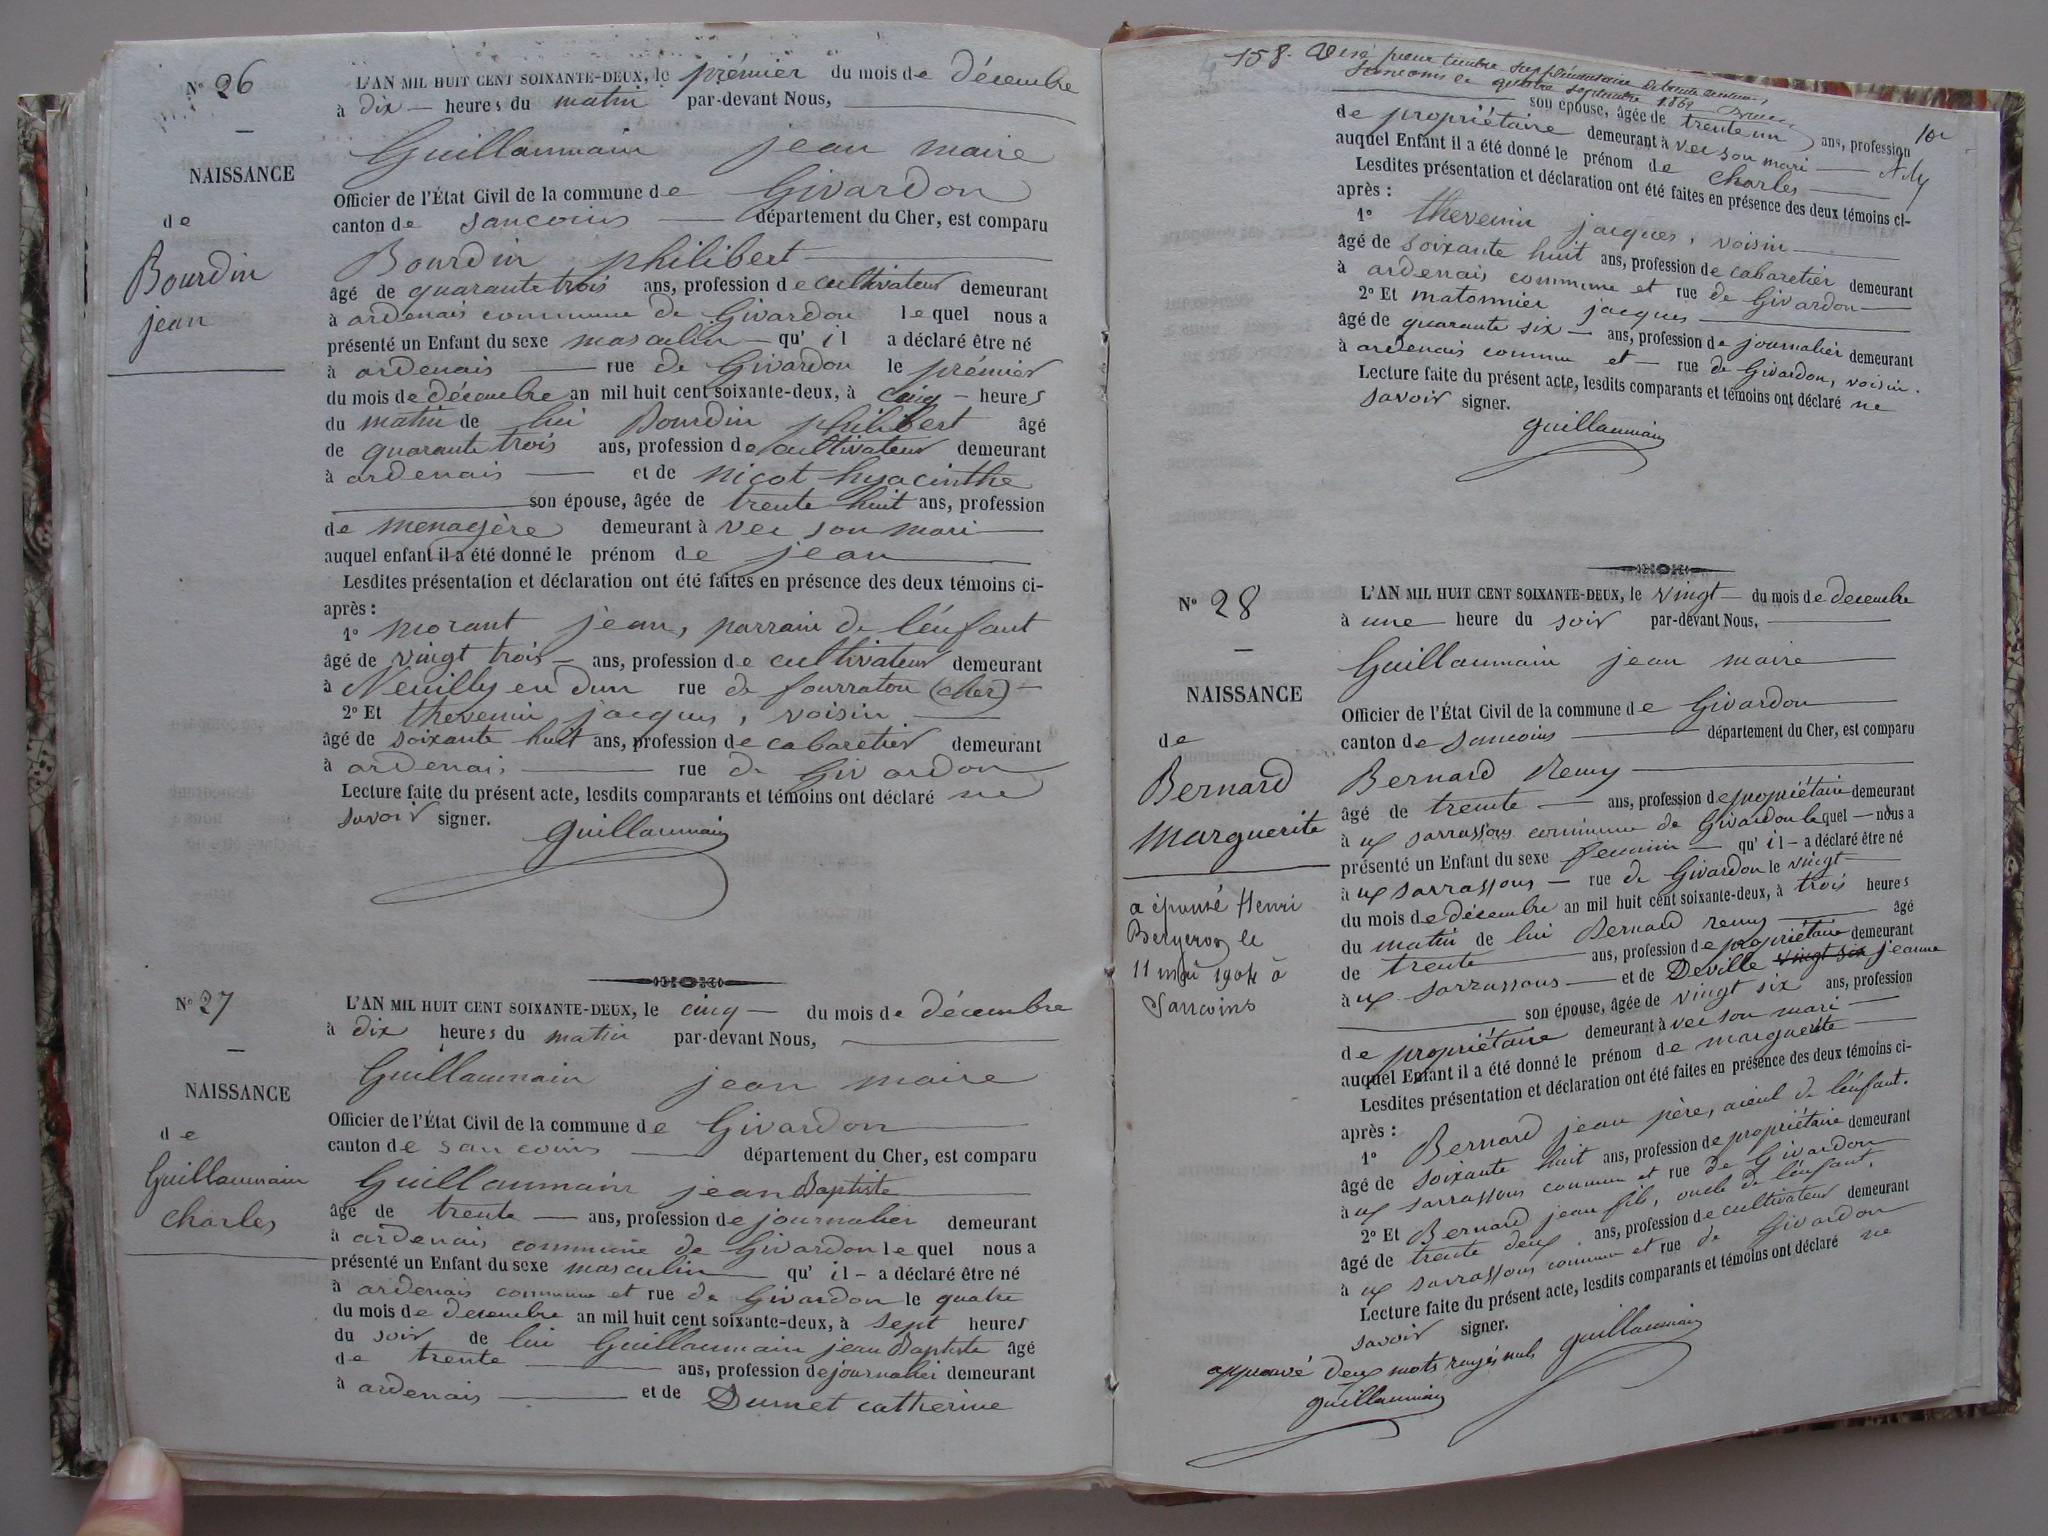 N° 26
NAISSANCE
de
Bourdin
jean
L'AN MIL HUIT CENT SOIXANTE-DEUX, le prémier du mois de décembre
à dix heures du matin par-devant Nous,
Guillaumain jean maire
Officier de l'État Civil de la commune de Givardon
canton de sancoins département du Cher, est comparu
Bourdin philibert
âgé de quarante trois ans, profession de cultivateur demeurant
à ardenais commune de Givardon lequel nous a
présenté un Enfant du sexe masculin qu'il a déclaré être né
à ardenais rue de Givardon le prémier
du mois de décembre an mil huit cent soixante-deux, à cinq heures
du matin de lui Bourdin philibert âgé
de quarante trois ans, profession de cultivateur demeurant
à ardenais et de nicot hyacinthe
son épouse, âgée de trente huit ans, profession
de menagère demeurant à vec son mari
auquel enfant il a été donné le prénom de jean
Lesdites présentation et déclaration ont été faites en présence des deux témoins ci-
après :
1° morant jean, parrain de l'enfant
âgé de vingt trois ans, profession de cultivateur demeurant
à Neuilly en dun rue de fourratou (cher)
2° Et thevenin jacques, voisin
âgé de soixante huit ans, profession de cabaretier demeurant
à ardenais rue de Givardon
Lecture faite du présent acte, lesdits comparants et témoins ont déclaré ne
savoir signer.
guillaumain
N° 27
NAISSANCE
de
Guillaumain
charles
L'AN MIL HUIT CENT SOIXANTE-DEUX, le cinq du mois de décembre
à dix heures du matin par-devant Nous,
Guillaumain jean maire
Officier de l'État Civil de la commune de Givardon
canton de sancoins département du Cher, est comparu
Guillaumain jean Baptiste
âgé de trente ans, profession de journalier demeurant
à ardenais commune de Givardon lequel nous a
présenté un Enfant du sexe masculin qu'il a déclaré être né
à ardenais commune et rue de Givardon le quatre
du mois de decembre an mil huit cent soixante-deux, à sept heures
du soir de lui Guillaumain jean Baptiste âgé
de trente ans, profession de journalier demeurant
à ardenais et de Dumet catherine
158. Visé pour timbre supplémentaire
Sancoins le quatre septembre
son épouse, âgée de trente un ans, profession
de propriétaire demeurant à vec son mari
auquel Enfant il a été donné le prénom de charles
Lesdites présentation et déclaration ont été faites en présence des deux témoins ci-
après :
1° thevenin jacques, voisin
âgé de soixante huit ans, profession de cabaretier demeurant
à ardenais commune et rue de Givardon
2° Et matonnier jacques
âgé de quarante six ans, profession de journalier demeurant
à ardenais commune et rue de Givardon, voisin.
Lecture faite du présent acte, lesdits comparants et témoins ont déclaré ne
savoir signer.
guillaumain
N° 28
NAISSANCE
de
Bernard
Marguerite
a épousé Henri
Bergeron le
11 mai 1904 à
Sancoins
L'AN MIL HUIT CENT SOIXANTE-DEUX, le vingt du mois de decembre
à une heure du soir par-devant Nous,
Guillaumain jean maire
Officier de l'État Civil de la commune de Givardon
canton de sancoins département du Cher, est comparu
Bernard Remy
âgé de trente ans, profession de propriétaire demeurant
à ux sarrassons commune de Givardon lequel nous a
présenté un Enfant du sexe feminin qu'il a déclaré être né
à ux sarrassons rue de Givardon le vingt
du mois de décembre an mil huit cent soixante-deux, à trois heures
du matin de lui Bernard remy âgé
de trente ans, profession de propriétaire demeurant
à ux sarrassons et de Deville vingt six jeanne
son épouse, âgée de vingt six ans, profession
de propriétaire demeurant à vec son mari
auquel Enfant il a été donné le prénom de marguerite
Lesdites présentation et déclaration ont été faites en présence des deux témoins ci-
après :
1° Bernard jean père, aieul de l'enfant.
âgé de soixante huit ans, profession de propriétaire demeurant
à ux sarrassons commune et rue de Givardon
2° Et Bernard jean fils, oncle de l'enfant.
âgé de trente deux ans, profession de cultivateur demeurant
à ux sarrassons commune et rue de Givardon
Lecture faite du présent acte, lesdits comparants et témoins ont déclaré ne
savoir signer.
guillaumain
approuvé deux mots rayés nuls
guillaumain